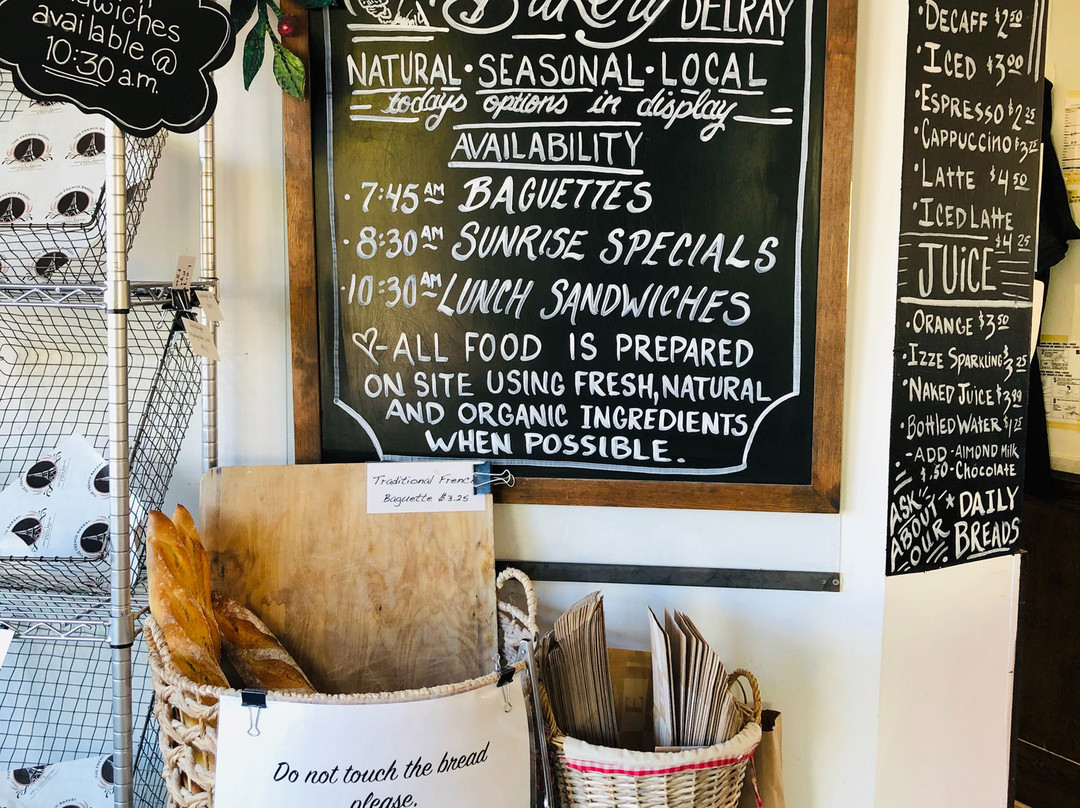 sandwiches
available @
10:30 a.m.
Bakery DELRAY
NATURAL • SEASONAL • LOCAL
todays options in display
AVAILABILITY
• 7:45 AM BAGUETTES
• 8:30 AM SUNRISE SPECIALS
• 10:30 AM LUNCH SANDWICHES
♡-ALL FOOD IS PREPARED
ON SITE USING FRESH, NATURAL
AND ORGANIC INGREDIENTS
WHEN POSSIBLE.
• DECAFF $2.50
• ICED $3.00
• ESPRESSO $2.25
• CAPPUCCINO $3.75
• LATTE $4.50
• ICED LATTE
$4.25
JUICE
• ORANGE $3.50
• IZZE SPARKLING $3.25
• NAKED JUICE $3.99
• BOTTLED WATER $1.25
-ADD -ALMOND MILK
$.50 -CHOCOLATE
ASK ABOUT OUR * DAILY
BREADS
Traditional French
Baguette $3.25
Do not touch the bread
please.